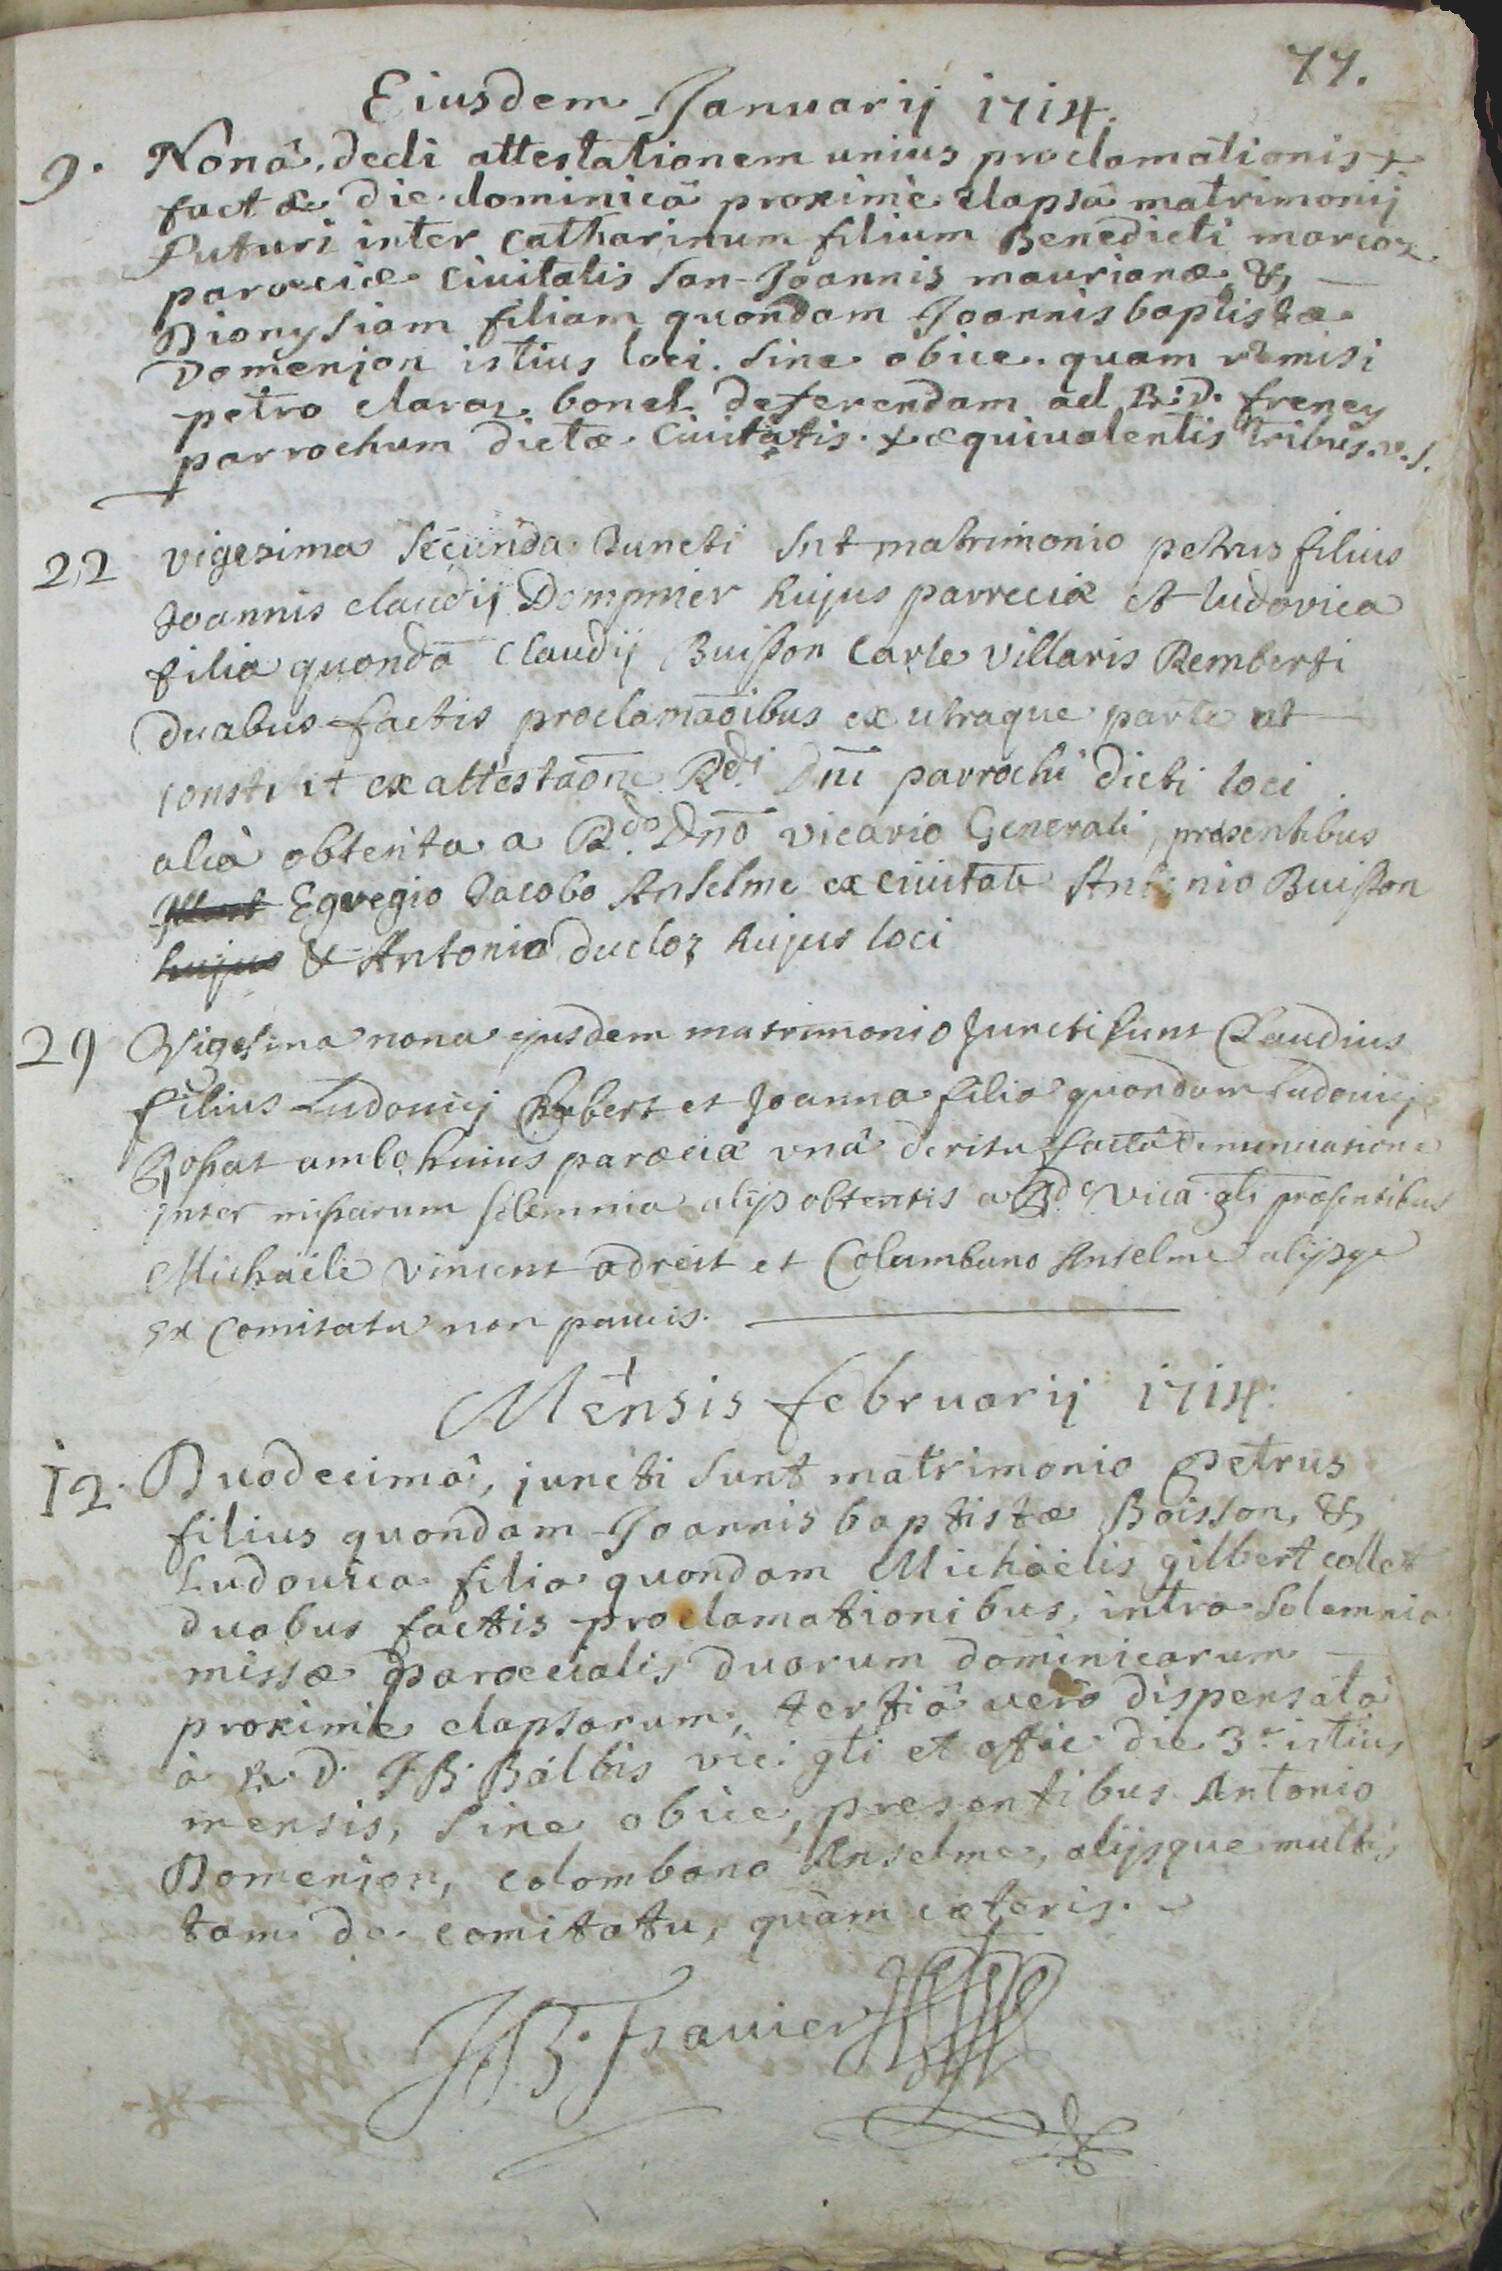 77.
Eiusdem Januarij 1714.
9. Nonâ, dedi attestationem unius proclamationis +
factæ die dominicâ proximè elapsâ matrimonij
futuri inter Catharinum filium Benedicti marcoz
parœciæ Civitatis San-Joannis maurianæ, &
Dionysiam filiam quondam Joannis baptistæ
Domenjon istius loci. sine obice. quam remisi
petro claraz bonel deferendam ad R.D. freney
parrochum dictæ Civitatis. + æquivalentis tribus. v.s.
22 vigesima secunda Juncti snt matrimonio petrus filius
Joannis claudij Dompnier hujus parreciæ et ludovica
filia quondā Claudij Buisson Carle villaris Remberti
duabus factis proclamaōibus ex utraque parte ut
constitit ex attestaōne Rdi Dni parrochi dicti loci
aliâ obtenta a Rdo Dnō vicario Generali, presentibus
Egregio Jacobo Anselme ex civitate Antonio Buisson
hujus & Antonio ducloz hujus loci
29 Vigesima nona ejusdem matrimonio Juncti sunt Claudius
filius Ludovici et Joanna filia quondam Ludovicj
ambo huius parœciæ vnâ de ritu factâ denunciatione
inter missarum solemnia alijs obtentis a Rdo Vica. gli præsentibus
Michaele vincent adreit et Columbano Anselme alijsqe
ex Comitatu non paucis.
Mensis februarij 1714.
12. Duodecimâ, juncti sunt matrimonio Petrus
filius quondam Joannis baptistæ Boisson, &
Ludovica filia quondam Michaëlis gilbert collet
duabus factis proclamationibus, intra solemnia
missæ parœcialis duarum dominicarum
proximè elapsarum, tertiâ verò dispensatâ
à R.D. J.B. Balbis vic. gli et offic. die 3a istius
mensis, sine obice, presentibus Antonio
Domenjon, colombano Anselme, alijsque multis
tam de comitatu, quàm cæteris.
J B. Travier